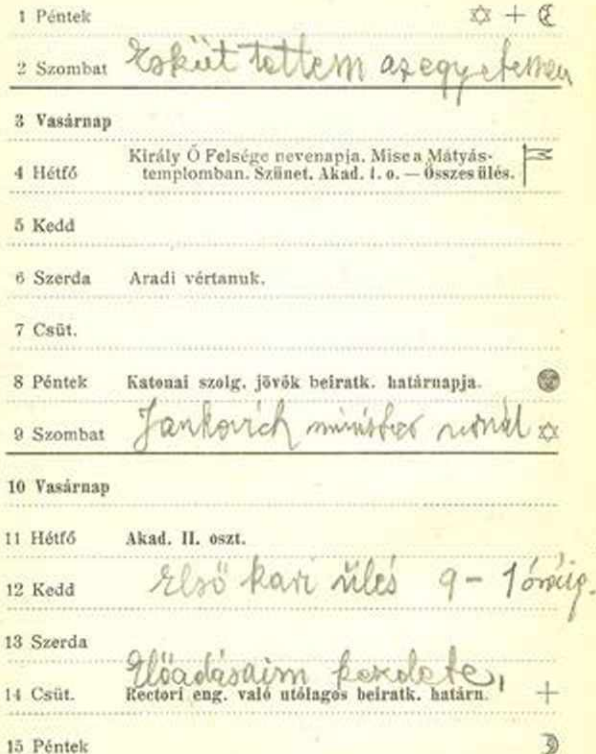 1 Péntek
2 Szombat Esküt tettem az egyetemen
3 Vasárnap
4 Hétfő Király Ő Felsége nevenapja. Mise a Mátyás-
templomban. Szünet. Akad. I. o. — Összes ülés.
5 Kedd
6 Szerda Aradi vértanuk.
7 Csüt.
8 Péntek Katonai szolg. jövők beiratk. határnapja.
9 Szombat Jankovich minister urnál
10 Vasárnap
11 Hétfő Akad. II. oszt.
12 Kedd Első kari ülés 9 - 1 óráig.
13 Szerda
Előadásaim kezdete,
14 Csüt. Rectori eng. való utólagos beiratk. határn.
15 Péntek